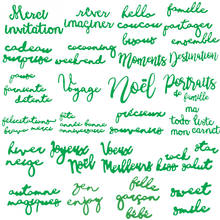 Merci
invitation
rêver
imaginer
hello
coucou
bisous
famille
partager
ensemble
cadeau
surprise
cocooning
weekend
Moments
Destination
pause
farniente
détente
Voyage
Noël
Portraits
de famille
félicitations
bonne année
fête
maman
précieux
souvenirs
ma
todo liste
mon carnet
hiver
neige
Joyeux
Noël
Voeux
Meilleurs
rock
kiss
star
automne
magiques
zen
enjoy
belle
garçon
bébé
sweet
smile